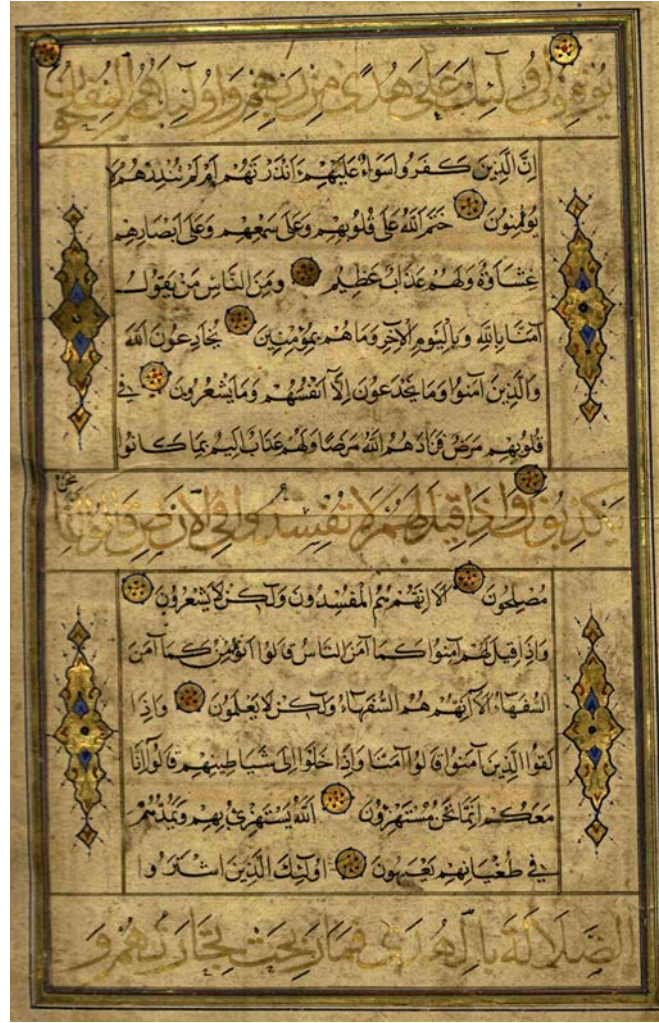 يوقنون اولئك على هدى من ربهم واولئك هم المفلحون
اِنَّ الَّذِينَ كَفَرُوا سَوَاءٌ عَلَيْهِمْ ءَاَنْذَرْتَهُمْ اَمْ لَمْ تُنْذِرْهُمْ لَا
يُؤْمِنُونَ خَتَمَ اللهُ عَلَى قُلُوبِهِمْ وَعَلَى سَمْعِهِمْ وَعَلَى اَبْصَارِهِمْ
غِشَاوَةٌ وَلَهُمْ عَذَابٌ عَظِيمٌ وَمِنَ النَّاسِ مَنْ يَقُولُ
آمَنَّا بِاللهِ وَبِالْيَوْمِ الْآخِرِ وَمَا هُمْ بِمُؤْمِنِينَ يُخَادِعُونَ اللهَ
وَالَّذِينَ آمَنُوا وَمَا يَخْدَعُونَ اِلَّا اَنْفُسَهُمْ وَمَا يَشْعُرُونَ فِي
قُلُوبِهِمْ مَرَضٌ فَزَادَهُمُ اللهُ مَرَضًا وَلَهُمْ عَذَابٌ اَلِيمٌ بِمَا كَانُوا
يَكْذِبُونَ وَاِذَا قِيلَ لَهُمْ لَا تُفْسِدُوا فِي الْاَرْضِ قَالُوا اِنَّمَا نَحْنُ
مُصْلِحُونَ اَلَا اِنَّهُمْ هُمُ الْمُفْسِدُونَ وَلٰكِنْ لَا يَشْعُرُونَ
وَاِذَا قِيلَ لَهُمْ آمِنُوا كَمَا آمَنَ النَّاسُ قَالُوا اَنُؤْمِنُ كَمَا آمَنَ
السُّفَهَاءُ اَلَا اِنَّهُمْ هُمُ السُّفَهَاءُ وَلٰكِنْ لَا يَعْلَمُونَ وَاِذَا
لَقُوا الَّذِينَ آمَنُوا قَالُوا آمَنَّا وَاِذَا خَلَوْا اِلَى شَيَاطِينِهِمْ قَالُوا اِنَّا
مَعَكُمْ اِنَّمَا نَحْنُ مُسْتَهْزِؤُنَ اَللهُ يَسْتَهْزِئُ بِهِمْ وَيَمُدُّهُمْ
فِي طُغْيَانِهِمْ يَعْمَهُونَ اُولٰئِكَ الَّذِينَ اشْتَرَوُا
الضَّلَالَةَ بِالْهُدَى فَمَا رَبِحَتْ تِجَارَتُهُمْ وَ